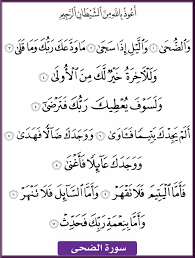 أعوذ بالله من الشيطان الرجيم
وَالضُّحَىٰ ۝١ وَاللَّيْلِ إِذَا سَجَىٰ ۝٢ مَا وَدَّعَكَ رَبُّكَ وَمَا قَلَىٰ ۝٣
وَلَلْآخِرَةُ خَيْرٌ لَّكَ مِنَ الْأُولَىٰ ۝٤
وَلَسَوْفَ يُعْطِيكَ رَبُّكَ فَتَرْضَىٰ ۝٥
أَلَمْ يَجِدْكَ يَتِيمًا فَآوَىٰ ۝٦ وَوَجَدَكَ ضَالًّا فَهَدَىٰ ۝٧
وَوَجَدَكَ عَائِلًا فَأَغْنَىٰ ۝٨
فَأَمَّا الْيَتِيمَ فَلَا تَقْهَرْ ۝٩ وَأَمَّا السَّائِلَ فَلَا تَنْهَرْ ۝١٠
وَأَمَّا بِنِعْمَةِ رَبِّكَ فَحَدِّثْ ۝١١
سورة الضحى